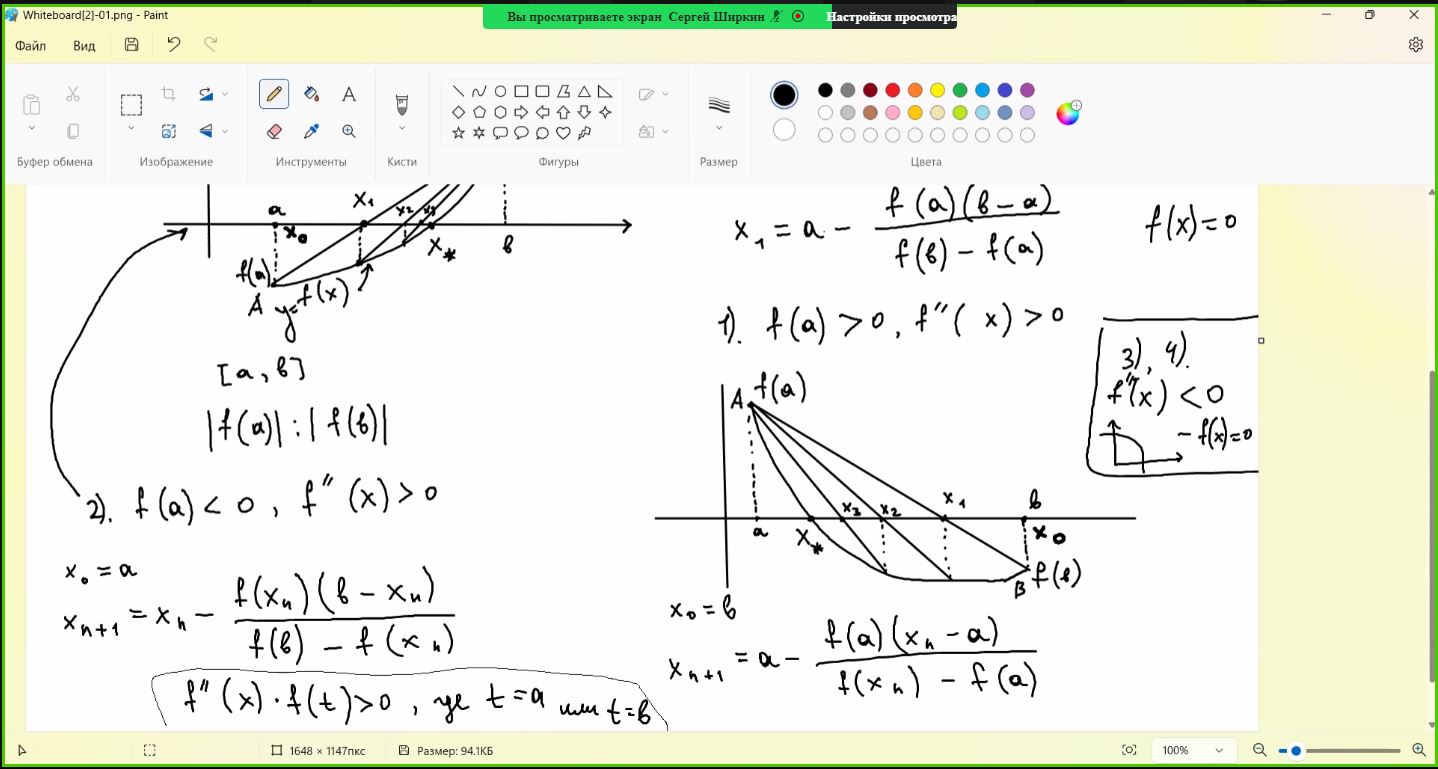 Whiteboard[2]-01.png - Paint
Вы просматриваете экран Сергей Ширкин
Настройки просмотра
Файл Вид
Буфер обмена
Изображение
Инструменты
Кисти
Фигуры
Размер
Цвета
a x₀ x₁ x₂ x₃ x* в
f(a)
A y=f(x)
[a, в]
|f(a)| : |f(в)|
2). f(a) < 0, f''(x) > 0
x₀ = a
xₙ₊₁ = xₙ - f(xₙ)(в - xₙ) / f(в) - f(xₙ)
f''(x) · f(t) > 0, где t = a или t = в
x₁ = a - f(a)(в - a) / f(в) - f(a)
f(x) = 0
1). f(a) > 0, f''(x) > 0
3), 4).
f''(x) < 0
- f(x) = 0
A f(a)
a x* x₃ x₂ x₁ в x₀
B f(в)
x₀ = в
xₙ₊₁ = a - f(a)(xₙ - a) / f(xₙ) - f(a)
1648 × 1147пкс
Размер: 94.1КБ
100%